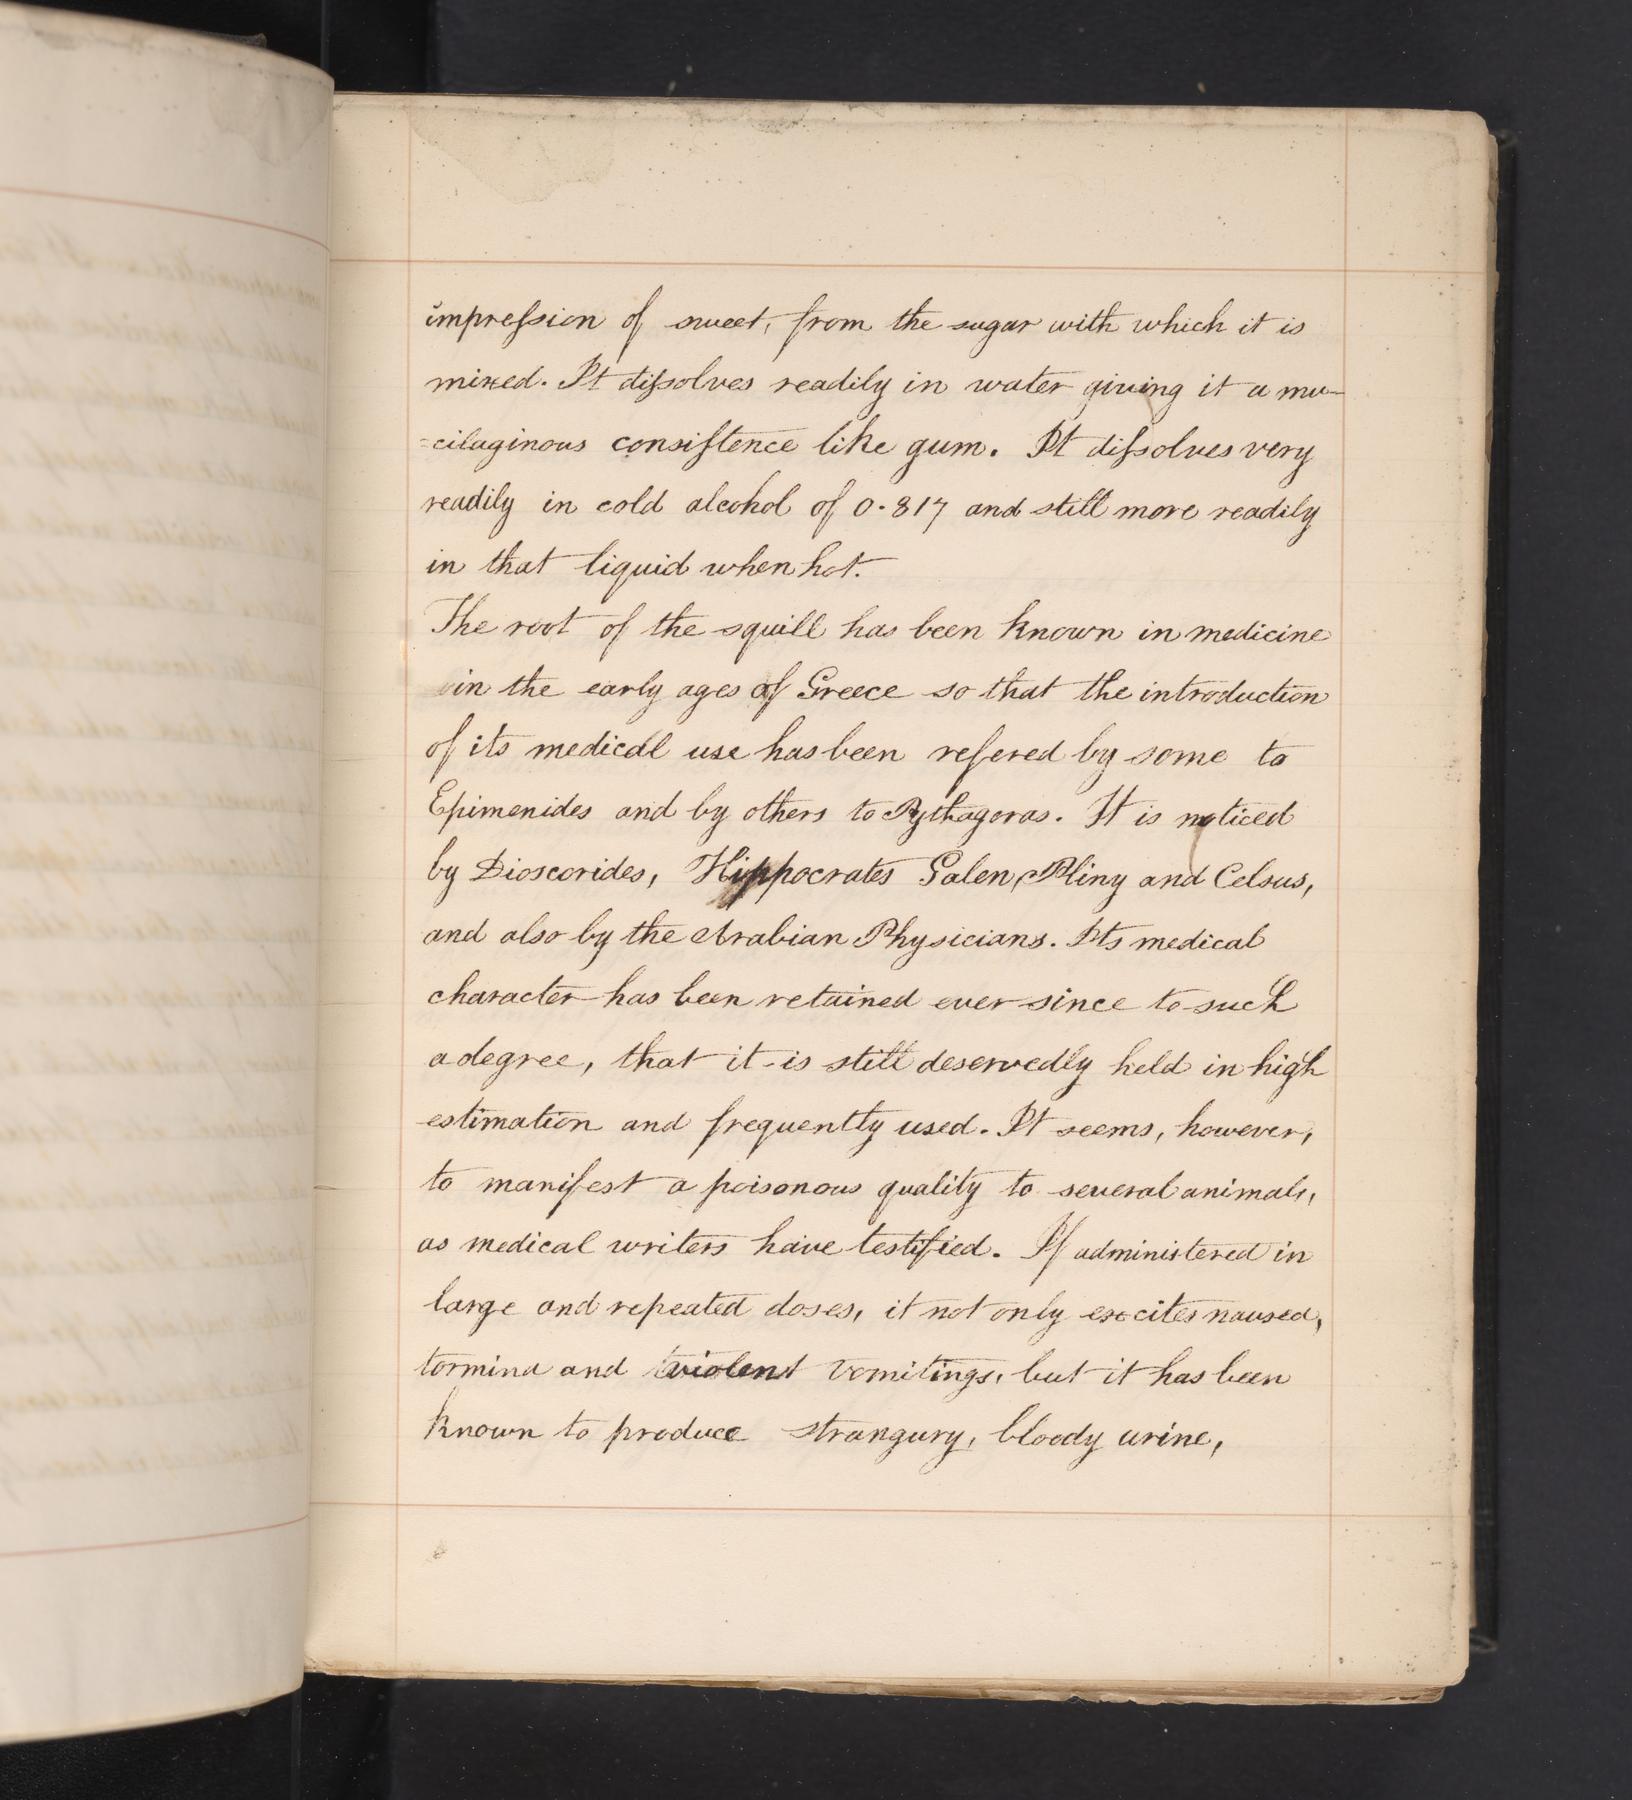 impreſsion of sweet, from the sugar with which it is
mixed. It diſsolves readily in water giving it a mu-
=cilaginous consiſtence like gum. It diſsolves very
readily in cold alcohol of 0.817 and still more readily
in that liquid when hot.
The root of the squill has been known in medicine
in the early ages of Greece so that the introduction
of its medical use has been refered by some to
Epimenides and by others to Pythagoras. It is noticed
by Dioscorides, Hippocrates Galen, Pliny and Celsus,
and also by the Arabian Physicians. Its medical
character has been retained ever since to such
a degree, that it is still deservedly held in high
estimation and frequently used. It seems, however,
to manifest a poisonous quality to several animals,
as medical writers have testified. If administered in
large and repeated doses, it not only excites nausea,
tormina and violent vomitings, but it has been
known to produce strangury, bloody urine,